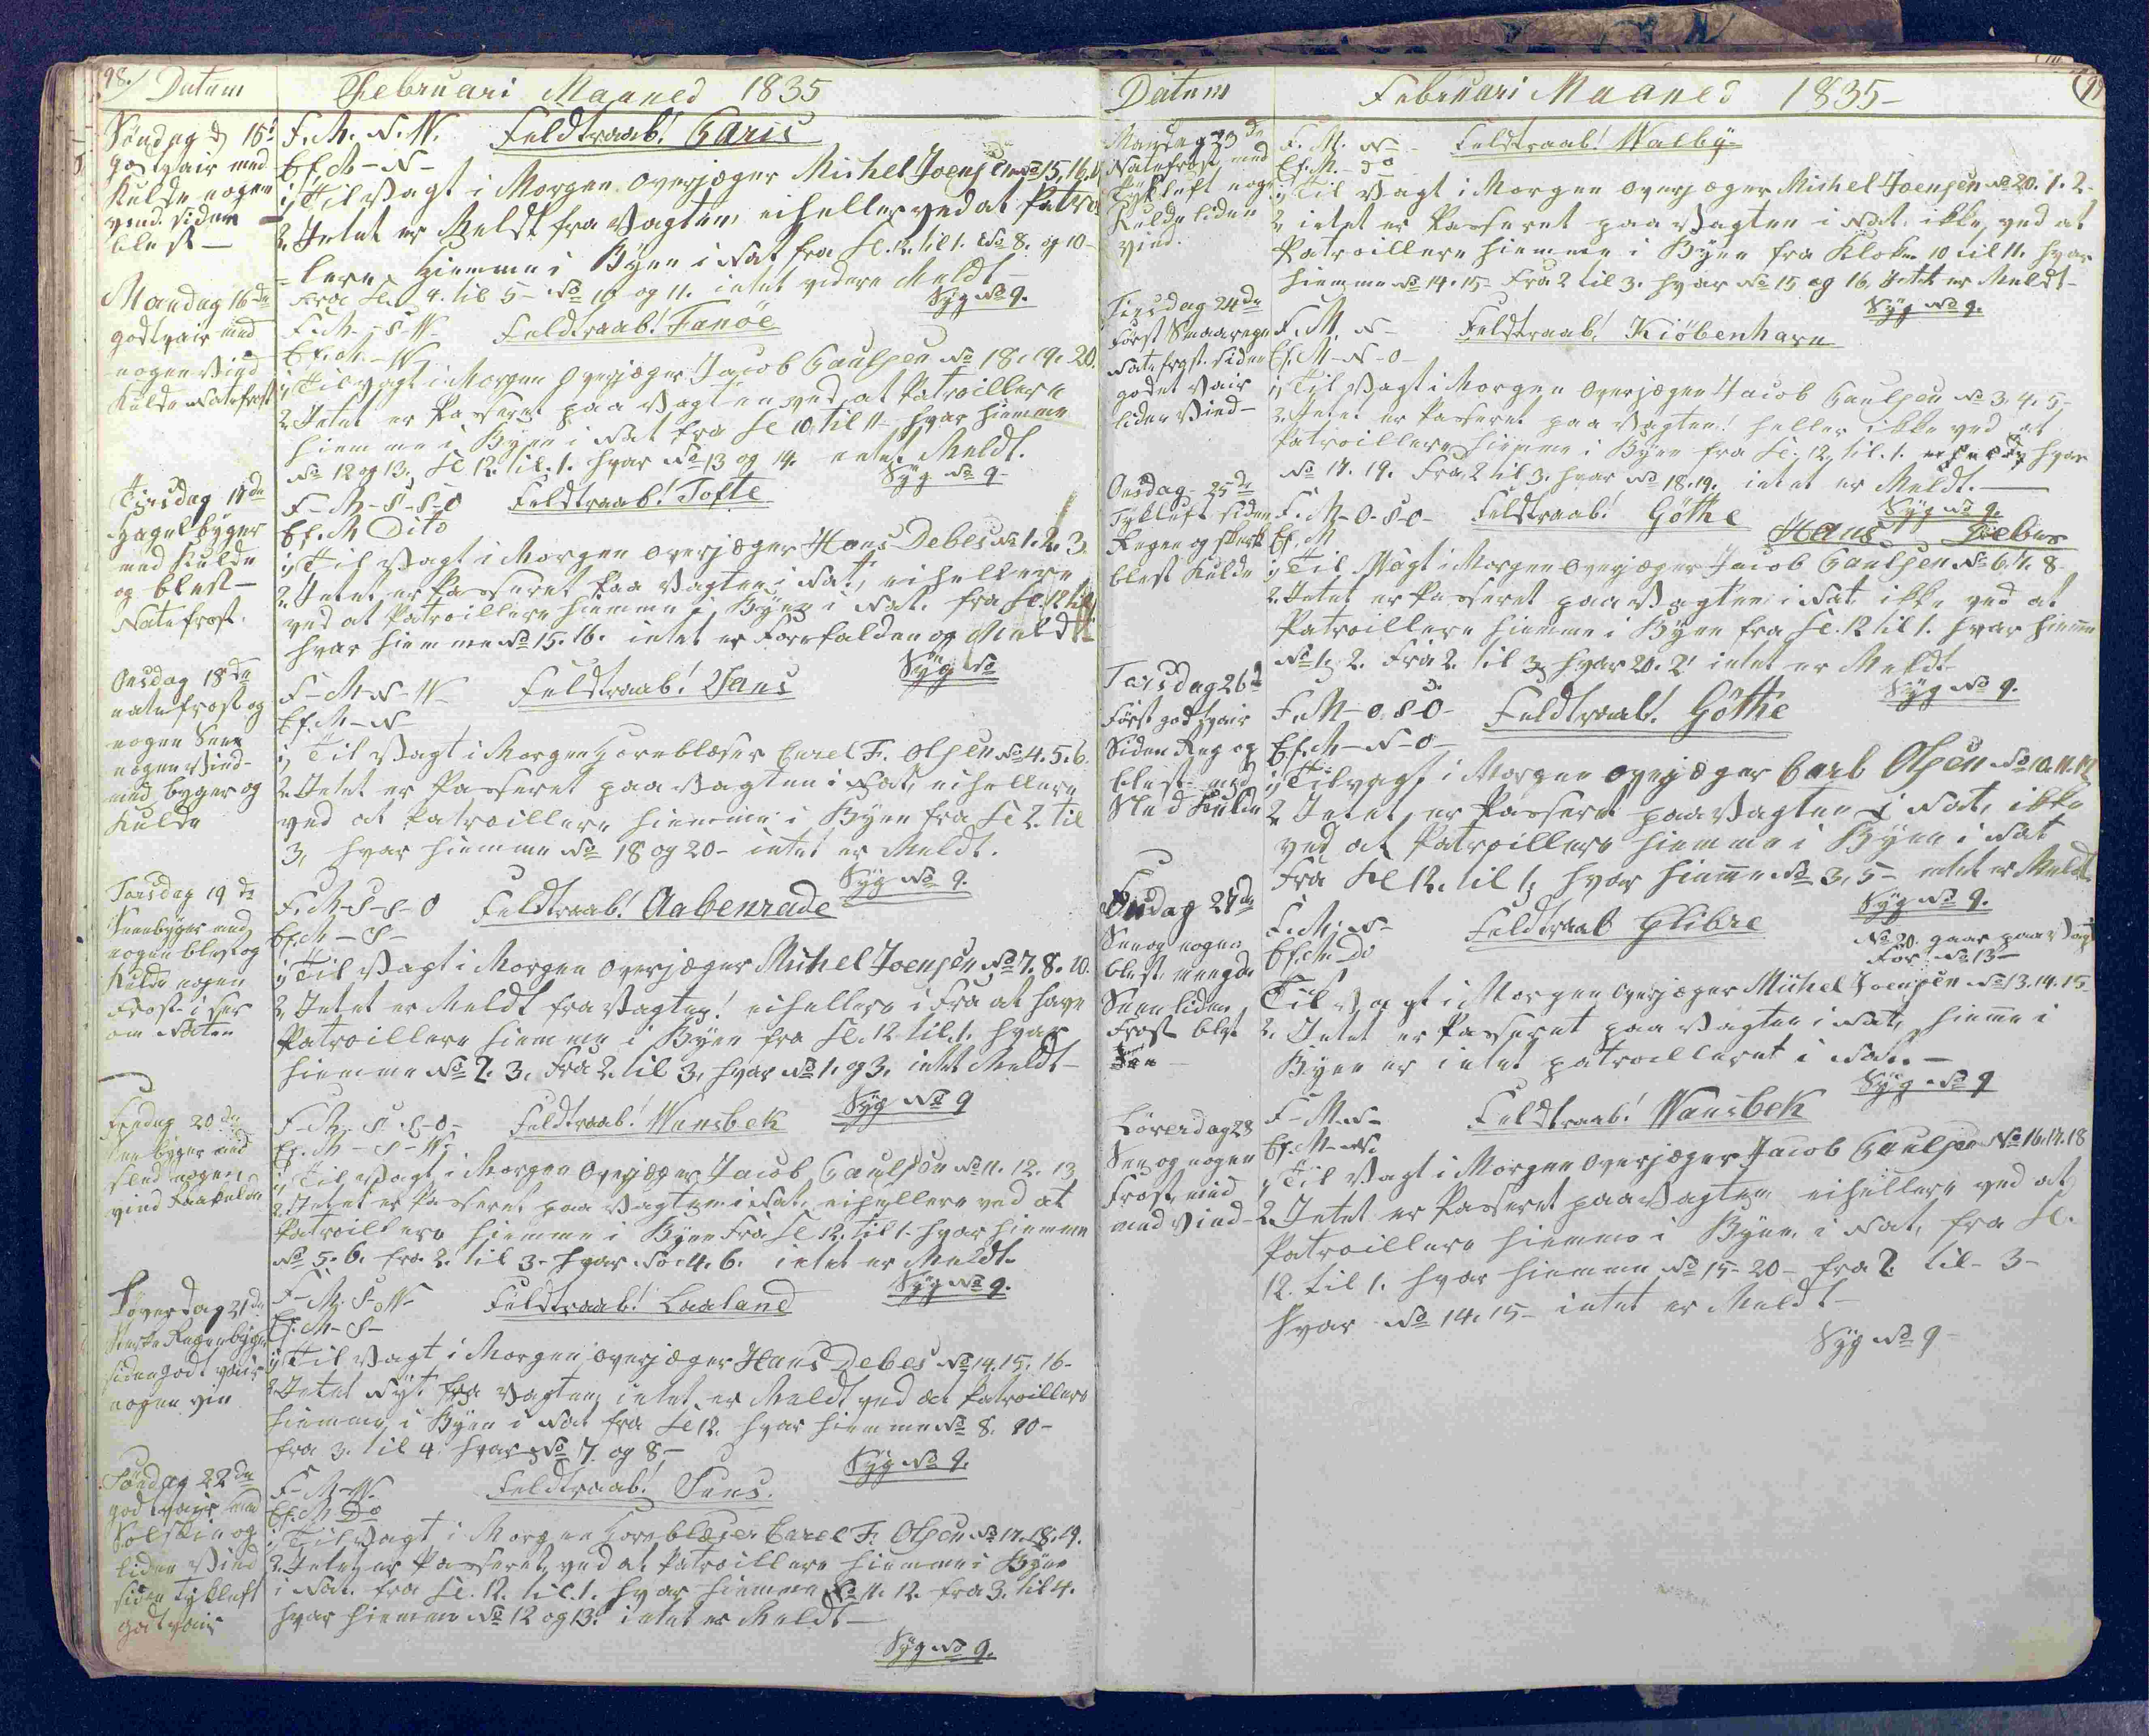 98. Datum
Februari Maaned 1835
Søndag d 15de
godt vair med
Kulde nogen
vind. siden
blest –
F. M. N. W. Feldtraab! Paris
Ef. M – N –
1, Til Vagt i Morgen Overjæger Michel Joensen No 15, 16,
2. Intet er Meldt fra Vagten, eihellere ved at Patro
= lere Hiemme i Byen i Nat fra Kl. 12 til 1. No 8. og 10 –
Fra Kl. 4. til 5 – No 10 og 11. intet videre Meldt –
Syg No 9.
Mandag 16de
godt vair med
nogen Vind
Kulde Natefrost
F. M. – S – W – Feldtraab! Fanöe
Ef. M. – W –
1, Til Vagt i Morgen Overjæger Jacob Poulsen No 18. 19. 20.
2. Intet er Passeret paa Vagten ved at Patroillere
hiemme i Byen i Nat fra Kl 10 til 11 – hvar hiemme
No 12 og 13. Kl 12. til. 1. hvar No 13 og 14. intet Meldt.
Syg No 9 –
Tirsdag 17de
Hagelbyger
med Kulde
og blest –
Natefrost.
F – M – S – S – O Feldtraab! Tofte
Ef. M Dito
1, Til Vagt i Morgen Overjæger Hans Debes No 1. 2. 3.
2. Intet er Passeret paa Vagten i Nat, eihellere
ved at Patroillere hiemme i Byen i Nat. fra Kl. 12 til
hvar hiemme No 15. 16. intet er Forefalden og Meldt –
Syg No
Onsdag 18de
natefrost og
nogen Snee
nogen Vind –
med byger og
Kulde
F – M – N – W – Feldtraab! Vans
Ef. M – N
1, Til Vagt i Morgen Hornblæser Carel F. Olsen No 4. 5. 6.
2. Intet er Passeret paa Vagten i Nat, eihellere
ved at Patroillere hiemme i Byen fra Kl 2. til
3, hvar hiemme No 18 og 20 – intet er Meldt.
Syg No 9.
Torsdag 19de
Sneebyger med
nogen blest og
Kulde nogen
Frost i ser
om Naten
F. M – S – S – O Feldtraab! Aabenrade
Ef. M – S –
1, Til Vagt i Morgen Overjæger Michel Joensen No 7. 8. 10.
2. Intet er Meldt fra Vagten! eihellere i Fra at have
Patroillere hiemme i Byen fra Kl. 12 til. 1. hvar
hiemme No 2. 3. Fra 2. til 3, hvar No 1. og 3. intet Meldt –
Syg No 9
Fredag 20de
Snee byger med
Sled nogen
vind Raakulde
F – M – S – S – O – Feldtraab! Wansbek
Ef. M – S – W –
1, Til Vagt i Morgen Overjæger Jacob Poulsen No 11. 12. 13
2. Intet er Passeret paa Vagten i Nat, eihellere ved at
Patroillere hiemme i Byen Fra Kl 12. til 1. hvar hiemme
No 5. 6. fra 2. til 3. hvar No 4. 6. intet er Meldt.
Syg No 9.
Løverdag 21de
Stærke Regenbyger
siden godt vair
nogen vin
F – M. S – W – Feldtraab! Laaland
Ef. M – S –
1, Til Vagt i Morgen Overjæger Hans Debes No 14. 15. 16 –
2. Intet Nyt fra Vagten, intet er Meldt ved at Patroillere
hiemme i Byen i Nat fra Kl 12. hvar hiemme No 8. 10 –
fra 3. til 4. hvar No 7. og 8 –
Syg No 9.
Søndag 22de
godt vair med
Solskin og
liden Vind
siden tykluft
godt vair
F – M – W – Feldtraab! Sens.
Ef. M Do
1, Til Vagt i Morgen Hornblæser Carel F. Olsen No 17. 18. 19.
2. Intet er Passeret, ved at Patroillere hiemme i Byen
i Nat. fra Kl. 12. til. 1. hvar hiemme No 11. 12. fra 3. til 4.
hvar hiemme No 12 og 13. intet er Meldt –
Syg No 9.
Datum
Februari Maaned 1835 –
Mandag 23de
Natefrost med
Tykluft nogen
Kulde liden
vind.
F. M. N – Feldtraab! Walby –
Ef. M. – Do
1, Til Vagt i Morgen Overjæger Michel Joensen No 20. 1. 2 –
2, intet er Passeret paa Vagten i Nat. ikke ved at
Patroillere hiemme i Byen fra Kloken 10 til 11. hvar
hiemme No 14. 15 – Fra 2 til 3. hvar No 15 og 16. Intet er Meldt –
Syg No 9.
Tirsdag 24de
Først Smaaregn
Natefrost. siden
godet vair
liden Vind –
F. M. N – Feldtraab! Kiöbenhavn
Ef. M – N – O –
1, Til Vagt i Morgen Overjæger Jacob Poulsen No 3. 4. 5 –
2. Intet er Passeret paa Vagten! heller ikke ved at
Patroillere hiemme i Byen fra Kl. 12, til. 1. hvar
No 17. 19. Fra 2 til 3. hvar No 18. 19. intet er Meldt. –
Syg No 9.
Onsdag – 25de
Tykluft siden
Regen og sterk
blest Kulde
F. M – O – S – O – Feldtraab! Göthe
Hans Debes
Ef. M
1, Til Vagt i Morgen Overjæger Jacob Poulsen No 6. 7. 8 –
2. Intet er Passeret paa Vagten i Nat ikke ved at
Patroillere hiemme i Byen fra Kl. 12 til 1. hvar hiemme
No 1. 2. Fra 2. til 3. hvar 20. 2! intet er Meldt
Syg No 9.
Torsdag 26d
Først godt vair
Siden Reg og
blest med
Sled Kulde
F. M – O. S – O – Feldtraab! Göthe
Ef. M – N – O –
1, Til Vagt i Morgen Overjæger Carl Olsen No 10. 11. 12
2. Intet er Passeret paa Vagten i Nat, ikke
ved at Patroillere hiemme i Byen i Nat
Fra Kl 12. til 1, hvar hiemme No 3, 5 – intet er Meldt
Syg No 9.
Fredag 27de
Snee og nogen
blest mengde
Snee liden
Frost blest
F. M: N – Feldtraab Glibre
No 20. gaar paa Vagt
For No 13 –
Ef. M. Do
Til Vagt i Morgen Overjæger Michel Joensen No 13. 14. 15 –
2. Intet er Passeret paa Vagten i Nat, hiemme i
Byen er intet patroilleret i Nat. –
Syg No 9
Løverdag 28
Snee og nogen
Frost med
med Vind –
F – M – N – Feldtraab! Wansbek
Ef. M – N.
1, Til Vagt i Morgen Overjæger Jacob Poulsen No 16. 17. 18
2. Intet er Passeret paa Vagten eihellere ved at
Patroillere hiemme i Byen i Nat, fra Kl.
12. til 1. hvar hiemme No 15 – 20 – fra 2. til – 3 –
hvar No 14. 15 – intet er Meldt –
Syg No 9 –